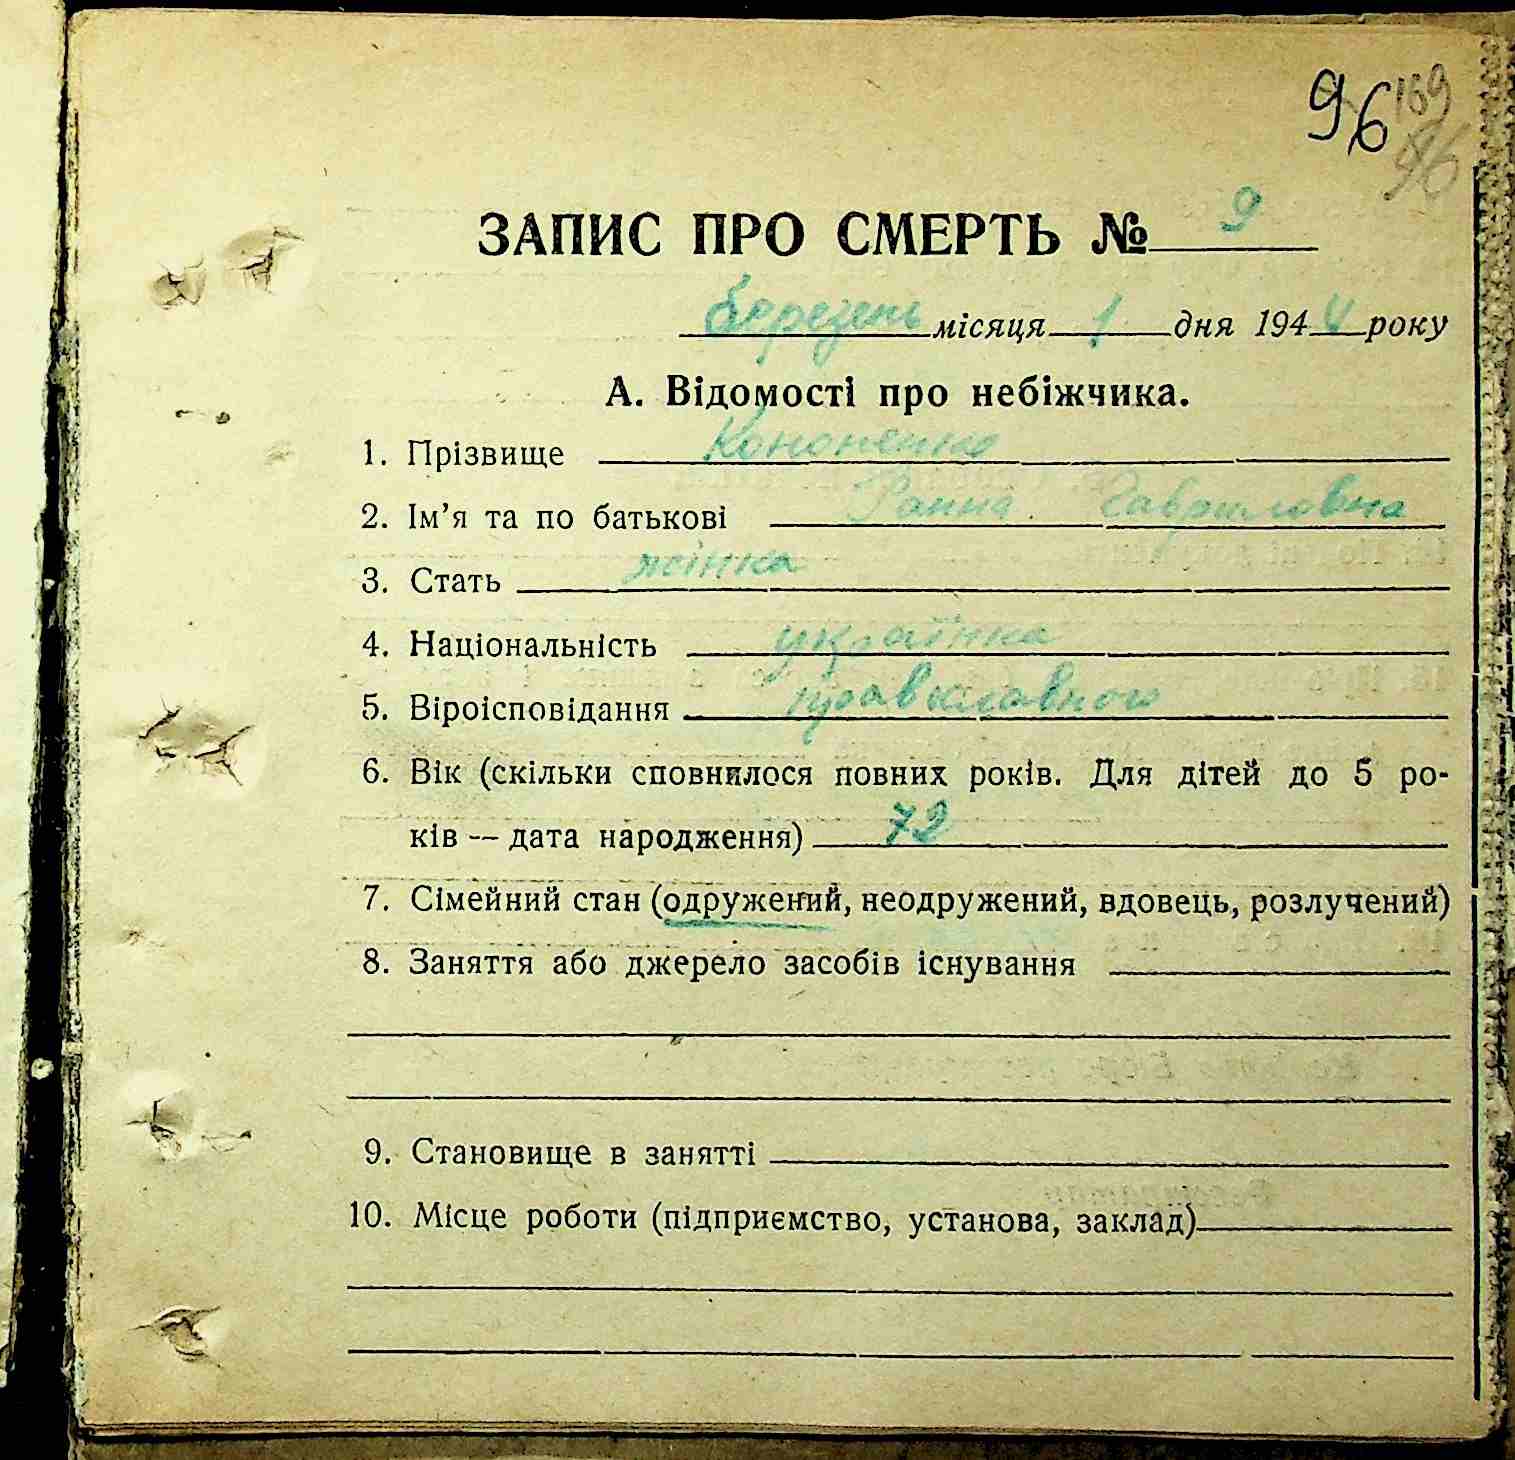 96 169
96
ЗАПИС ПРО СМЕРТЬ № 9
березень місяця 1 дня 1944 року
А. Відомості про небіжчика.
1. Прізвище Кононенко
2. Ім’я та по батькові Ганна Гавриловна
3. Стать жінка
4. Національність українка
5. Віроісповідання православного
6. Вік (скільки сповнилося повних років. Для дітей до 5 ро-
ків — дата народження) 72
7. Сімейний стан (одружений, неодружений, вдовець, розлучений)
8. Заняття або джерело засобів існування
9. Становище в занятті
10. Місце роботи (підприємство, установа, заклад)